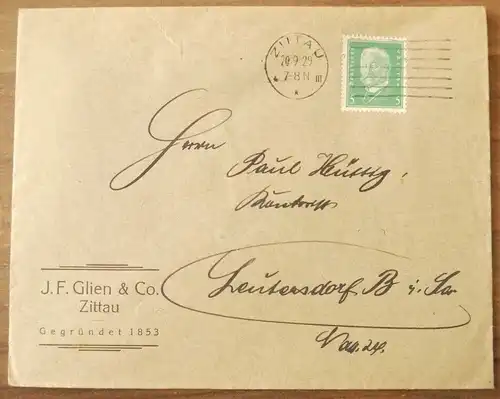 ZITTAU
20.9.29
7-8 N
III
5 5
Herrn
Paul Hüttig,
Leutersdorf B i. Sa.
J. F. Glien & Co.
Zittau
Gegründet 1853